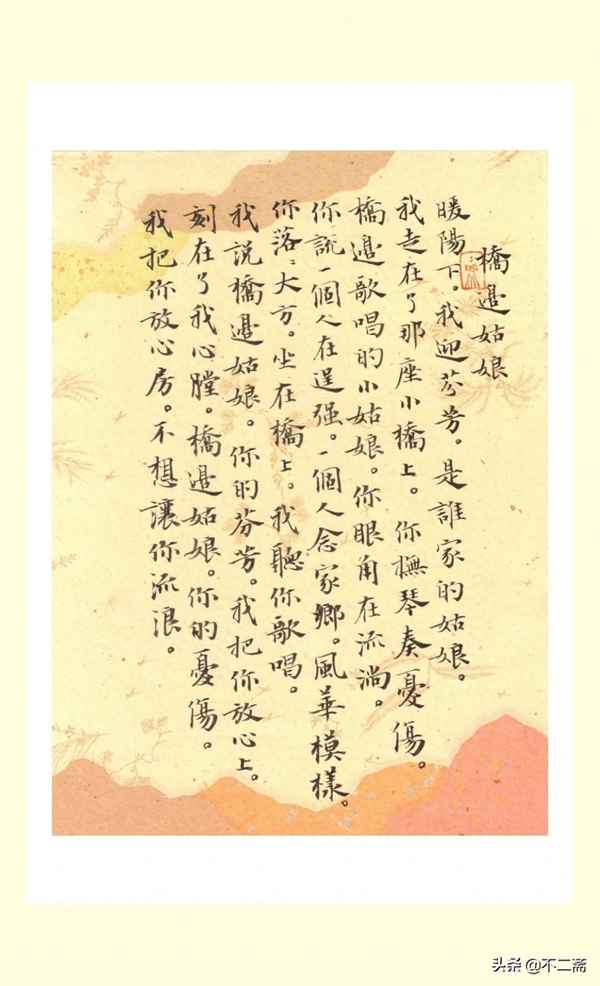 橋邊姑娘
暖陽下。我迎芬芳。是誰家的姑娘。
我走在了那座小橋上。你撫琴奏憂傷。
橋邊歌唱的小姑娘。你眼角在流淌。
你説一個人在逞强。一個人念家鄉。風華模樣。
你落〻大方。坐在橋上。我聽你歌唱。
我说橋邊姑娘。你的芬芳。我把你放心上。
刻在了我心膛。橋邊姑娘。你的憂傷。
我把你放心房。不想讓你流浪。
头条 @不二斋